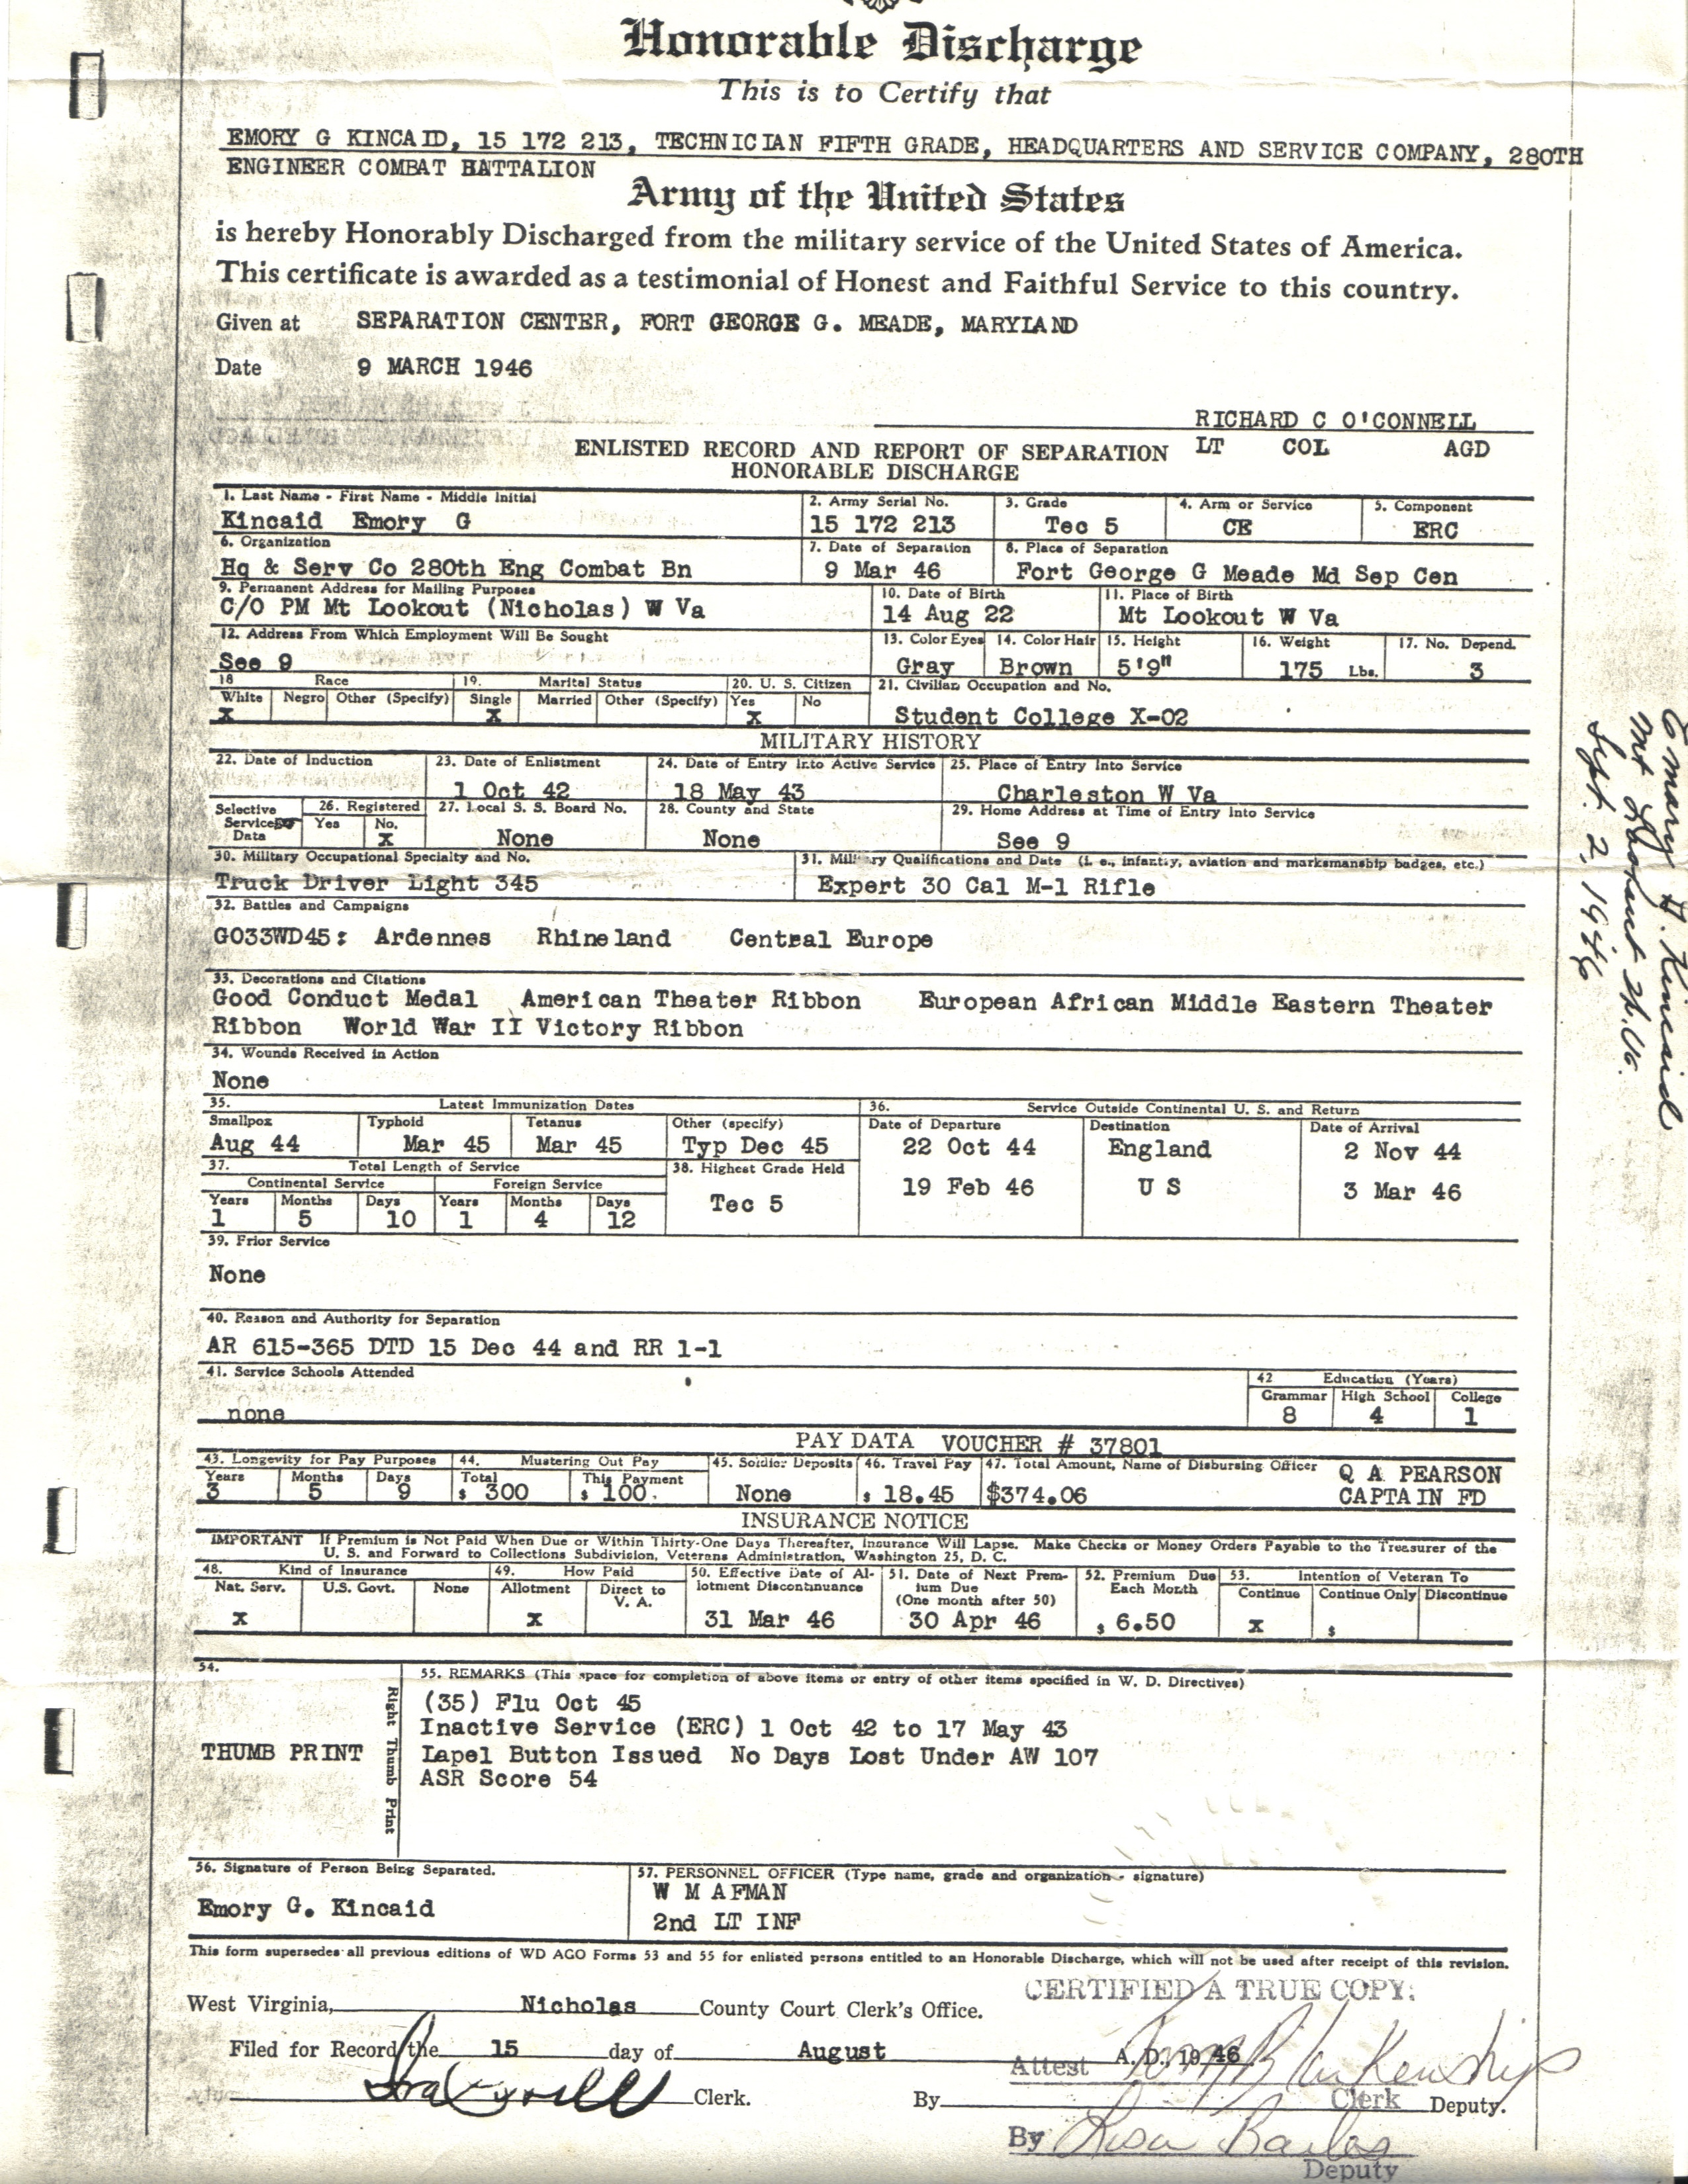 Honorable Discharge
This is to Certify that
EMORY G KINCAID, 15 172 213, TECHNICIAN FIFTH GRADE, HEADQUARTERS AND SERVICE COMPANY, 280TH
ENGINEER COMBAT BATTALION
Army of the United States
is hereby Honorably Discharged from the military service of the United States of America.
This certificate is awarded as a testimonial of Honest and Faithful Service to this country.
Given at SEPARATION CENTER, FORT GEORGE G. MEADE, MARYLAND
Date 9 MARCH 1946
RICHARD C O'CONNELL
LT COL AGD
ENLISTED RECORD AND REPORT OF SEPARATION
HONORABLE DISCHARGE
1. Last Name - First Name - Middle Initial 2. Army Serial No. 3. Grade 4. Arm or Service 5. Component
Kincaid Emory G 15 172 213 Tec 5 CE ERC
6. Organization 7. Date of Separation 8. Place of Separation
Hq & Serv Co 280th Eng Combat Bn 9 Mar 46 Fort George G Meade Md Sep Cen
9. Permanent Address for Mailing Purposes 10. Date of Birth 11. Place of Birth
C/O PM Mt Lookout (Nicholas) W Va 14 Aug 22 Mt Lookout W Va
12. Address From Which Employment Will Be Sought 13. Color Eyes 14. Color Hair 15. Height 16. Weight 17. No. Depend.
See 9 Gray Brown 5'9" 175 Lbs. 3
18 Race 19. Marital Status 20. U. S. Citizen 21. Civilian Occupation and No.
White Negro Other (Specify) Single Married Other (Specify) Yes No
X X X Student College X-02
MILITARY HISTORY
22. Date of Induction 23. Date of Enlistment 24. Date of Entry Into Active Service 25. Place of Entry Into Service
1 Oct 42 18 May 43 Charleston W Va
Selective Services Data 26. Registered 27. Local S. S. Board No. 28. County and State 29. Home Address at Time of Entry Into Service
Yes No.
X None None See 9
30. Military Occupational Specialty and No. 31. Military Qualifications and Date (i. e., infantry, aviation and marksmanship badges, etc.)
Truck Driver Light 345 Expert 30 Cal M-1 Rifle
32. Battles and Campaigns
GO33WD45: Ardennes Rhineland Central Europe
33. Decorations and Citations
Good Conduct Medal American Theater Ribbon European African Middle Eastern Theater
Ribbon World War II Victory Ribbon
34. Wounds Received in Action
None
35. Latest Immunization Dates 36. Service Outside Continental U. S. and Return
Smallpox Typhoid Tetanus Other (specify) Date of Departure Destination Date of Arrival
Aug 44 Mar 45 Mar 45 Typ Dec 45 22 Oct 44 England 2 Nov 44
37. Total Length of Service 38. Highest Grade Held
Continental Service Foreign Service
19 Feb 46 U S 3 Mar 46
Years Months Days Years Months Days
1 5 10 1 4 12 Tec 5
39. Prior Service
None
40. Reason and Authority for Separation
AR 615-365 DTD 15 Dec 44 and RR 1-1
41. Service Schools Attended 42 Education (Years)
Grammar High School College
none 8 4 1
PAY DATA VOUCHER # 37801
43. Longevity for Pay Purposes 44. Mustering Out Pay 45. Soldier Deposits 46. Travel Pay 47. Total Amount, Name of Disbursing Officer Q A PEARSON
Years Months Days Total This Payment
3 5 9 $ 300 $ 100. None $ 18.45 $374.06 CAPTAIN FD
INSURANCE NOTICE
IMPORTANT If Premium is Not Paid When Due or Within Thirty-One Days Thereafter, Insurance Will Lapse. Make Checks or Money Orders Payable to the Treasurer of the
U. S. and Forward to Collections Subdivision, Veterans Administration, Washington 25, D. C.
48. Kind of Insurance 49. How Paid 50. Effective Date of Al- 51. Date of Next Prem- 52. Premium Due 53. Intention of Veteran To
Nat. Serv. U.S. Govt. None Allotment Direct to lotment Discontinuance ium Due Each Month Continue Continue Only Discontinue
V. A. (One month after 50)
X X 31 Mar 46 30 Apr 46 $ 6.50 X $
54. 55. REMARKS (This space for completion of above items or entry of other items specified in W. D. Directives)
(35) Flu Oct 45
Inactive Service (ERC) 1 Oct 42 to 17 May 43
THUMB PRINT
Right Thumb Print
Lapel Button Issued No Days Lost Under AW 107
ASR Score 54
56. Signature of Person Being Separated. 57. PERSONNEL OFFICER (Type name, grade and organization - signature)
W M AFMAN
Emory G. Kincaid
2nd LT INF
This form supersedes all previous editions of WD AGO Forms 53 and 55 for enlisted persons entitled to an Honorable Discharge, which will not be used after receipt of this revision.
CERTIFIED A TRUE COPY:
West Virginia, Nicholas County Court Clerk's Office.
Filed for Record the 15 day of August A. D., 19 46
Attest
Clerk. By Clerk Deputy.
By
Deputy
Kincaid
Sept. 2, 1946